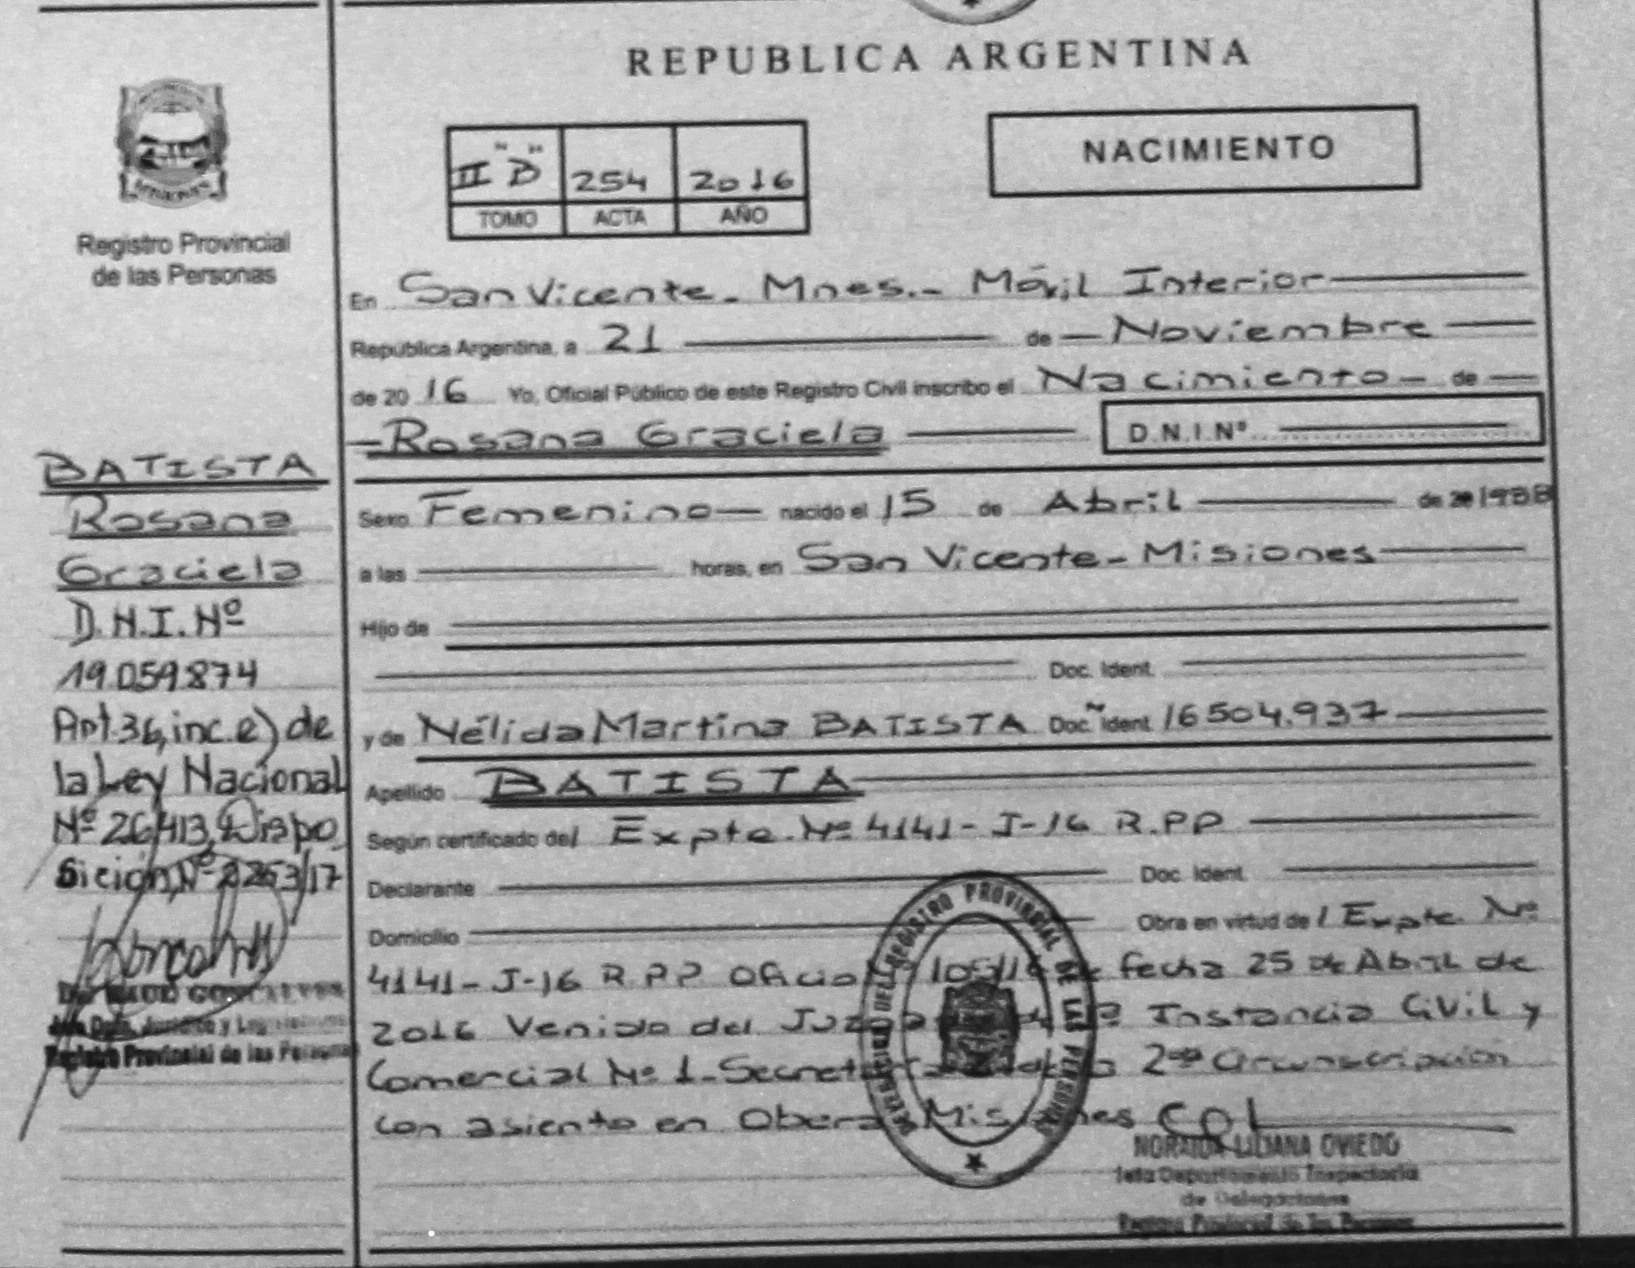 REPUBLICA ARGENTINA
NACIMIENTO
II "B" 254 2016
TOMO ACTA AÑO
MISIONES
Registro Provincial
de las Personas
En San Vicente - Mnes.- Móvil Interior
República Argentina, a 21 de Noviembre
de 20 16 Yo, Oficial Público de este Registro Civil inscribo el Nacimiento - de
Rosana Graciela D.N.I.Nº
Sexo Femenino nacido el 15 de Abril de 20 1988
a las horas, en San Vicente - Misiones
Hijo de
Doc. Ident.
y de Nélida Martina BATISTA Doc. Ident 16504.937
Apellido BATISTA
Según certificado del Expte. Nº 4141-J-16 R.PP
Declarante Doc. Ident.
Domicilio Obra en virtud de / Expte. Nº
4141-J-16 R.PP Oficio de fecha 25 de Abril de
2016 Venido del 1ª Instancia Civil y
Comercial Nº 1 - 2da Circunscripción
con asiento en Oberá Misiones
BATISTA
Rosana
Graciela
D.N.I. Nº
19.059.874
Art. 36, inc. e) de
la Ley Nacional
Nº 26413, Dispo
sición, Nº 2263/17
Registro Provincial de las Personas
REGISTRO PROVINCIAL DE LAS PERSONAS
LILIANA OVIEDO
Jefa Departamento Inspectoria
de Delegaciones
Registro Provincial de las Personas